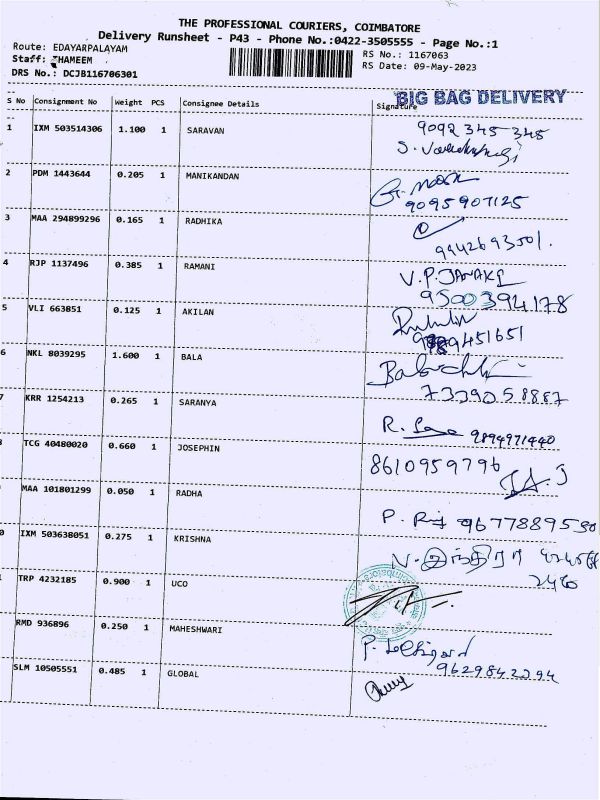 THE PROFESSIONAL COURIERS, COIMBATORE
Delivery Runsheet - P43 - Phone No.:0422-3505555 - Page No.:1
Route: EDAYARPALAYAM
RS No.: 1167063
Staff: SHAMEEM
RS Date: 09-May-2023
DRS No.: DCJB116706301
BIG BAG DELIVERY
S No Consignment No Weight PCS Consignee Details Signature
1 IXM 503514306 1.100 1 SARAVAN 9092 345 345
2 PDM 1443644 0.205 1 MANIKANDAN
9095907125
3 MAA 294899296 0.165 1 RADHIKA
9942693501.
4 RJP 1137496 0.385 1 RAMANI V.P.JANAKI
9500394178
5 VLI 663851 0.125 1 AKILAN
6 NKL 8039295 1.600 1 BALA
7339058887
7 KRR 1254213 0.265 1 SARANYA
9894971440
TCG 40480020 0.660 1 JOSEPHIN 8610959796
MAA 101801299 0.050 1 RADHA 9677889530
IXM 503638051 0.275 1 KRISHNA N. இந்திரா
2460
TRP 4232185 0.900 1 UCO
RMD 936896 0.250 1 MAHESHWARI
9629842294
SLM 10505551 0.485 1 GLOBAL